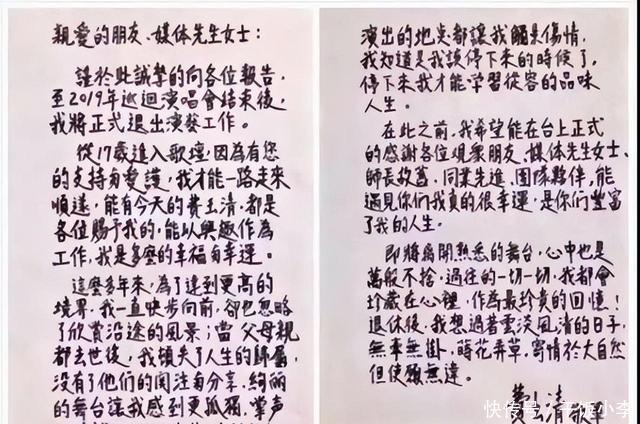 親愛的朋友、媒体先生女士：
謹於此誠摯的向各位報告，
至2019年巡迴演唱會結束後，
我將正式退出演藝工作。
從17歲進入歌壇，因為有您
的支持與愛護，我才能一路走來
順遂，能有今天的費玉清，都是
各位賜予我的，能以興趣作為
工作，我是多麼的幸福與幸運。
這麼多年來，為了達到更高的
境界，我一直快步向前，卻也忽略
了欣賞沿途的風景；當父母親
都去世後，我頓失了人生的歸屬，
沒有了他們的関注與分享，絢麗
的舞台讓我感到更孤獨，掌声
演出的地點都讓我觸景傷情，
我知道是我該停下來的時候了，
停下來我才能学習從容的品味
人生。
在此之前，我希望能在台上正式
的感謝各位观眾朋友、媒体先生女士、
師長故舊、同業先進、团隊夥伴，能
遇見你们我真的很幸運，是你们豐富
了我的人生。
即將离開熟悉的舞台，心中也是
萬般不捨，過往的一切一切，我都會
珍藏在心裡，作為最珍貴的回憶！
退休後，我想過著雲淡風清的日子，
無牽無掛，蒔花弄草，寄情於大自然
但使願無違。
費玉清敬筆
快传号：干饭小李